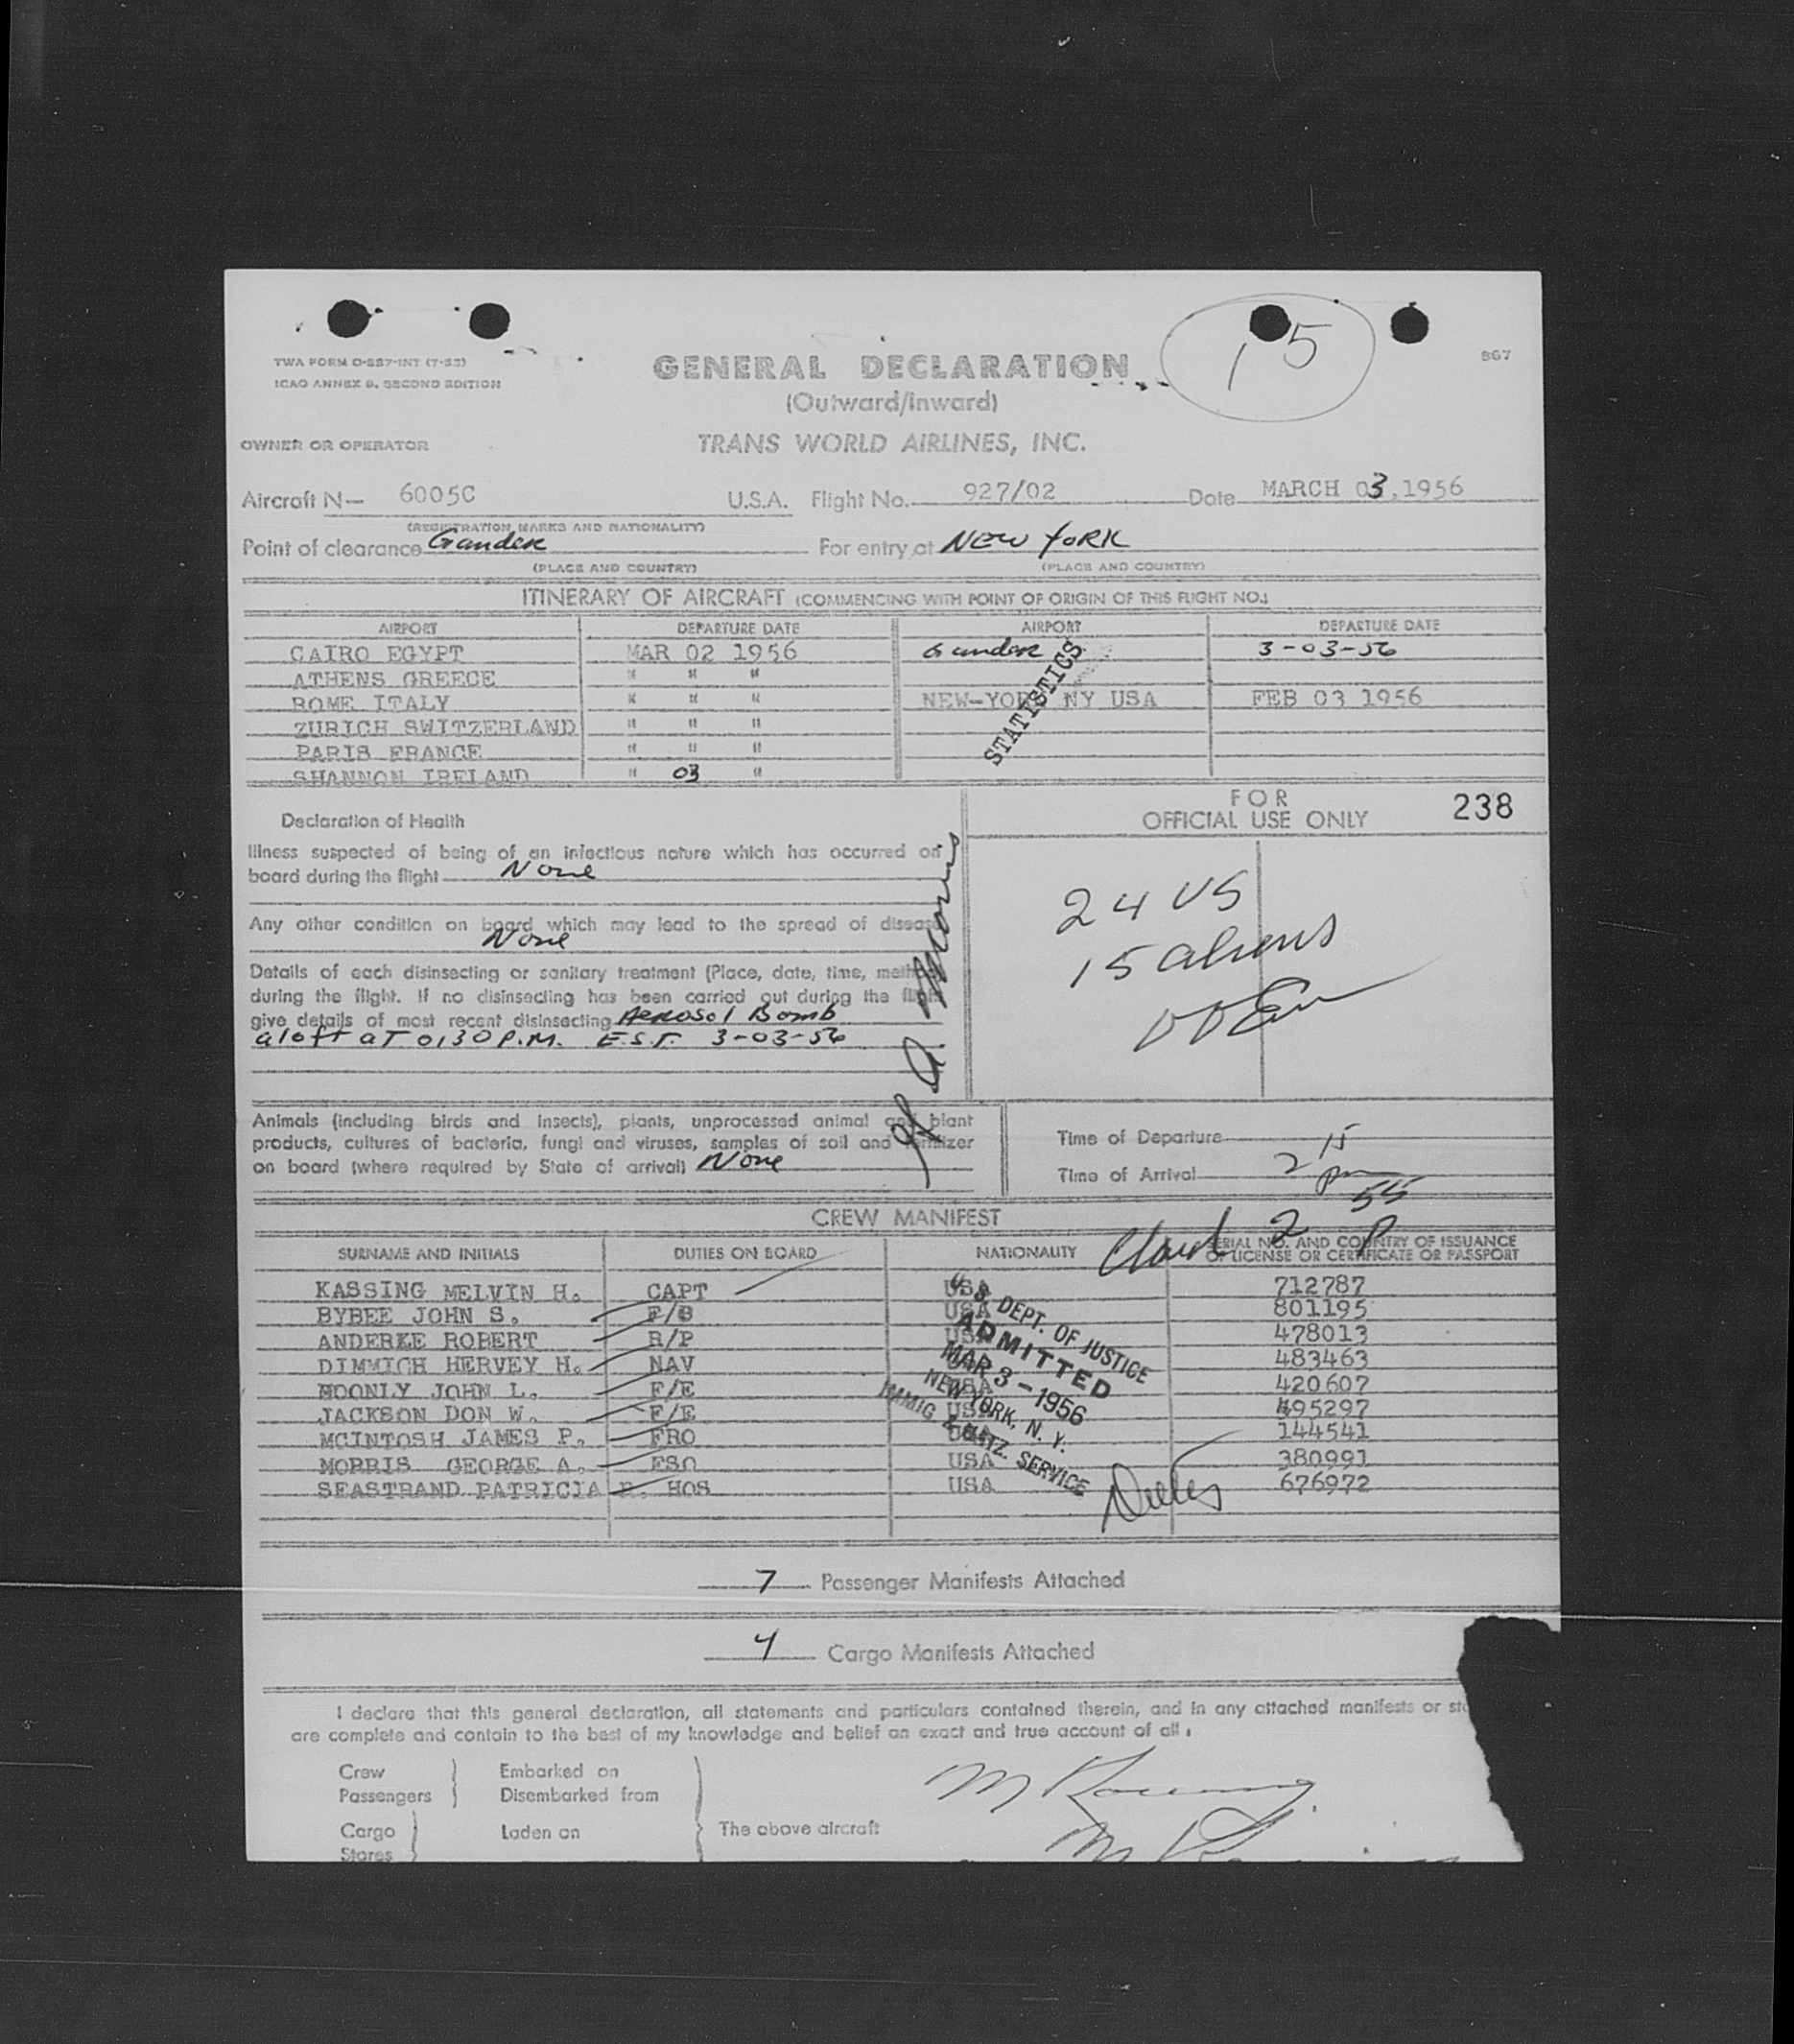 15
TWA FORM O-287-INT (7-53)
ICAO ANNEX 9, SECOND EDITION
GENERAL DECLARATION
867
(Outward/Inward)
OWNER OR OPERATOR
TRANS WORLD AIRLINES, INC.
Aircraft N— 6005C U.S.A. Flight No. 927/02 Date MARCH 03, 1956
(REGISTRATION MARKS AND NATIONALITY)
Point of clearance Gander For entry at NEW YORK
(PLACE AND COUNTRY) (PLACE AND COUNTRY)
ITINERARY OF AIRCRAFT (COMMENCING WITH POINT OF ORIGIN OF THIS FLIGHT NO.)
AIRPORT DEPARTURE DATE AIRPORT DEPARTURE DATE
CAIRO EGYPT MAR 02 1956 Gander 3-03-56
ATHENS GREECE " " "
ROME ITALY " " " NEW-YORK NY USA FEB 03 1956
ZURICH SWITZERLAND " " "
PARIS FRANCE " " "
SHANNON IRELAND " 03 "
STATISTICS
FOR
OFFICIAL USE ONLY 238
Declaration of Health
Illness suspected of being of an infectious nature which has occurred on
board during the flight None
Any other condition on board which may lead to the spread of disease
None
Details of each disinsecting or sanitary treatment (Place, date, time, method
during the flight. If no disinsecting has been carried out during the flight
give details of most recent disinsecting Aerosol Bomb
aloft at 0130 P.M. E.S.T. 3-03-56
G. A. Morris
24 US
15 aliens
Animals (including birds and insects), plants, unprocessed animal and plant
products, cultures of bacteria, fungi and viruses, samples of soil and fertilizer
on board (where required by State of arrival) None
Time of Departure
Time of Arrival 2 15 pm
CREW MANIFEST
2 55 P
SURNAME AND INITIALS DUTIES ON BOARD NATIONALITY SERIAL NO. AND COUNTRY OF ISSUANCE
OF LICENSE OR CERTIFICATE OR PASSPORT
KASSING MELVIN H. CAPT USA 712787
BYBEE JOHN S. F/O USA 801195
ANDERKE ROBERT R/P USA 478013
DIMMICH HERVEY H. NAV USA 483463
NOONLY JOHN L. F/E USA 420607
JACKSON DON W. F/E USA 495297
MCINTOSH JAMES P. FRO USA 144541
MORRIS GEORGE A. FSO USA 380991
SEASTRAND PATRICIA P. HOS USA 676972
U. S. DEPT. OF JUSTICE
ADMITTED
MAR 3 - 1956
NEW YORK, N. Y.
IMMIG & NATZ. SERVICE
7 Passenger Manifests Attached
4 Cargo Manifests Attached
I declare that this general declaration, all statements and particulars contained therein, and in any attached manifests or
are complete and contain to the best of my knowledge and belief an exact and true account of all
Crew Embarked on
Passengers Disembarked from
Cargo Laden on The above aircraft
Stores